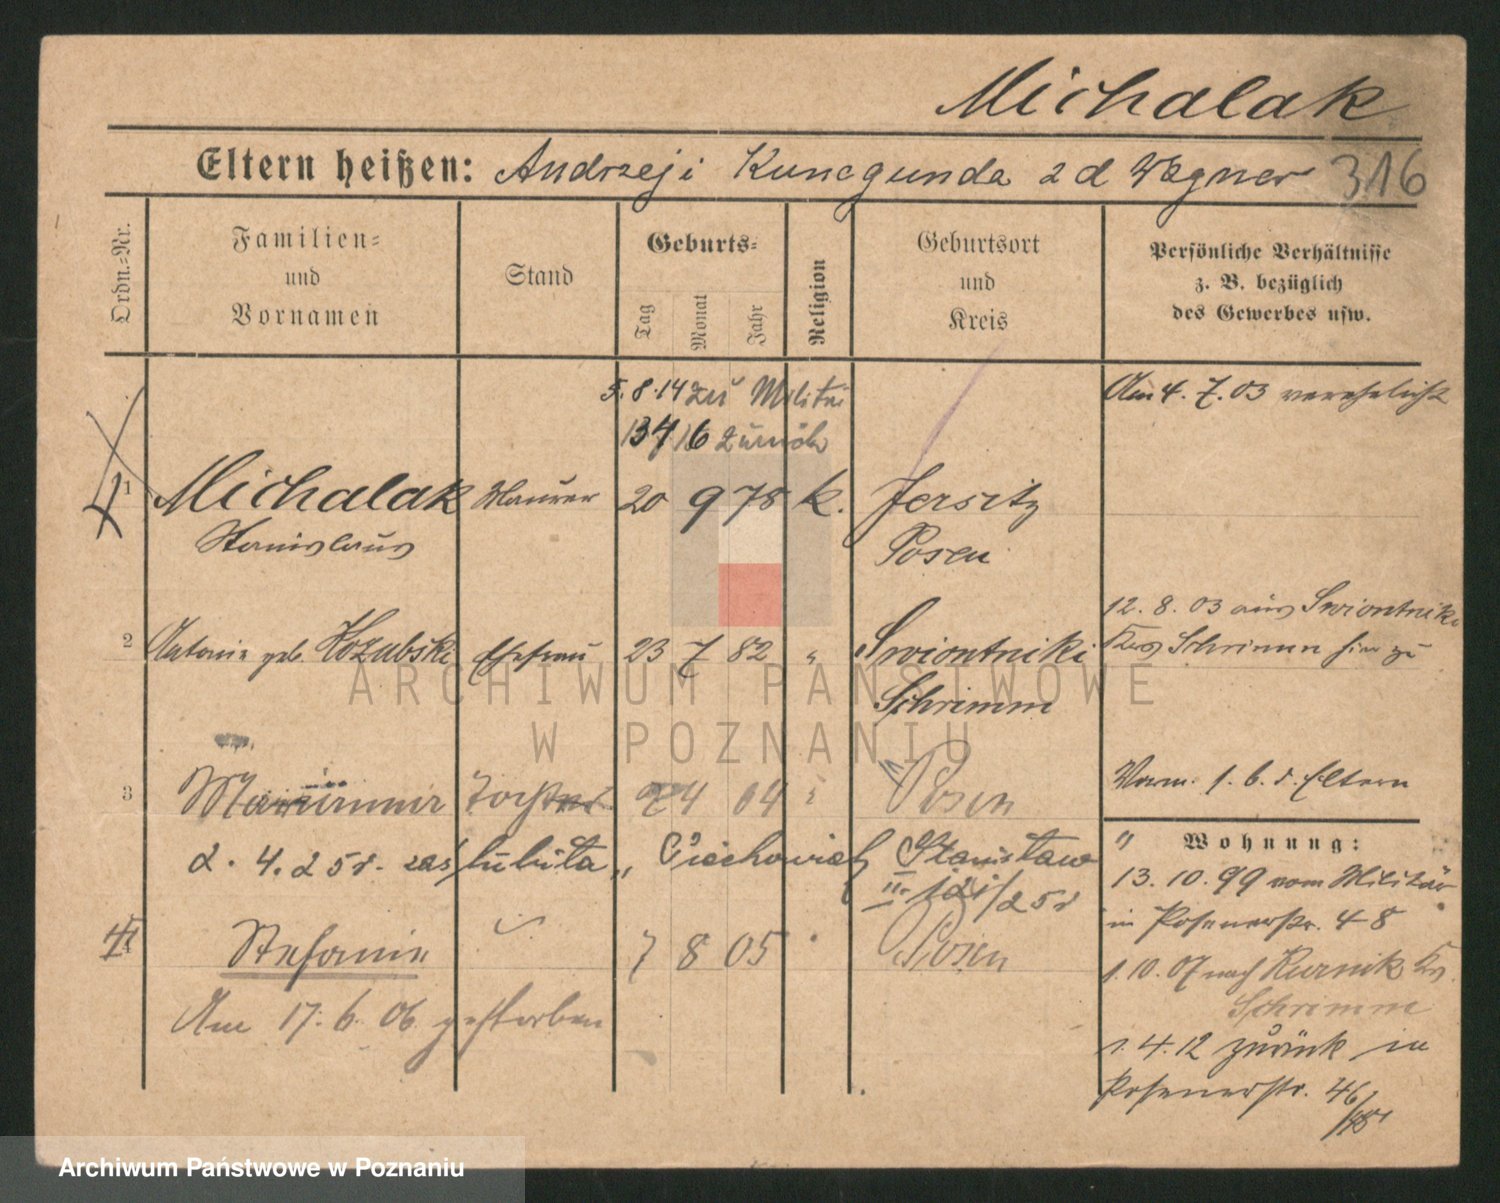 Michalak
Eltern heißen: Andrzej i Kunegunda z d Wegner 316
Ordn.-Nr.
Familien-
und
Vornamen
Stand
Geburts-
Tag
Monat
Jahr
Religion
Geburtsort
und
Kreis
Persönliche Verhältnisse
z. B. bezüglich
des Gewerbes usw.
5.8.14 zu Militär
13 4 16 zurück
Am 4. 7. 03 verehelicht
1 Michalak Maurer 20 9 78 k. Jersitz
Stanislaus Posen
12. 8. 03 aus Swiontniki
Krs Schrimm hierzu
2 Antonie geb. Kozubski Ehefrau 23 7 82 " Swiontniki
Schrimm
Vorm. 1. b. d. Eltern
3 Tochter 04 Posen
2. 4. 25 r. Ciechowicz Stanisław
4 Stefanie 7 8 05 Posen
Am 17. 6. 06 gestorben
" Wohnung:
13. 10. 99 vom Militär
in Posenerstr. 48
1. 10. 07 nach Kurnik Krs
Schrimm
1. 4. 12 zurück in
Posenerstr. 46/48
ARCHIWUM PAŃSTWOWE
W POZNANIU
Archiwum Państwowe w Poznaniu